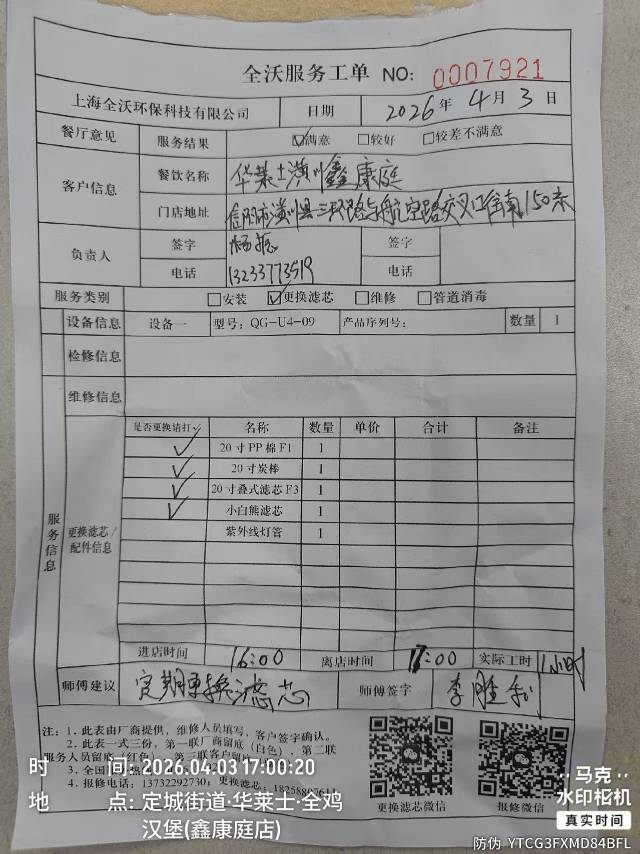 全沃服务工单 NO: 0007921
上海全沃环保科技有限公司 日期 2026年 4月 3日
餐厅意见 服务结果 ☑满意 □较好 □较差不满意
客户信息 餐饮名称 华莱士潢川鑫康庭
门店地址 信阳市潢川县三环路与航空路交叉口往南150米
负责人 签字 签字
电话 13233773519 电话
服务类别 □安装 ☑更换滤芯 □维修 □管道消毒
设备信息 设备一 型号: QG-U4-09 产品序列号: 数量 1
检修信息
维修信息
服务信息
更换滤芯/配件信息
是否更换请打✓ 名称 数量 单价 合计 备注
✓ 20寸PP棉F1 1
✓ 20寸炭棒 1
✓ 20寸叠式滤芯F3 1
✓ 小白熊滤芯 1
紫外线灯管 1
进店时间 16:00 离店时间 17:00 实际工时 1小时
师傅建议 定期更换滤芯 师傅签字 李胜利
注: 1. 此表由厂商提供, 维修人员填写, 客户签字确认。
2. 此表一式三份, 第一联厂商留底(白色), 第二联
服务人员留底(红色), 第三联客户留底
3. 全国
4. 报修电话: 13732292730: 更换滤芯: 18258807611
更换滤芯微信 报修微信
时 间: 2026.04.03 17:00:20
地 点: 定城街道·华莱士·全鸡
汉堡(鑫康庭店)
马克
水印相机
真实时间
防伪 YTCG3FXMD84BFL